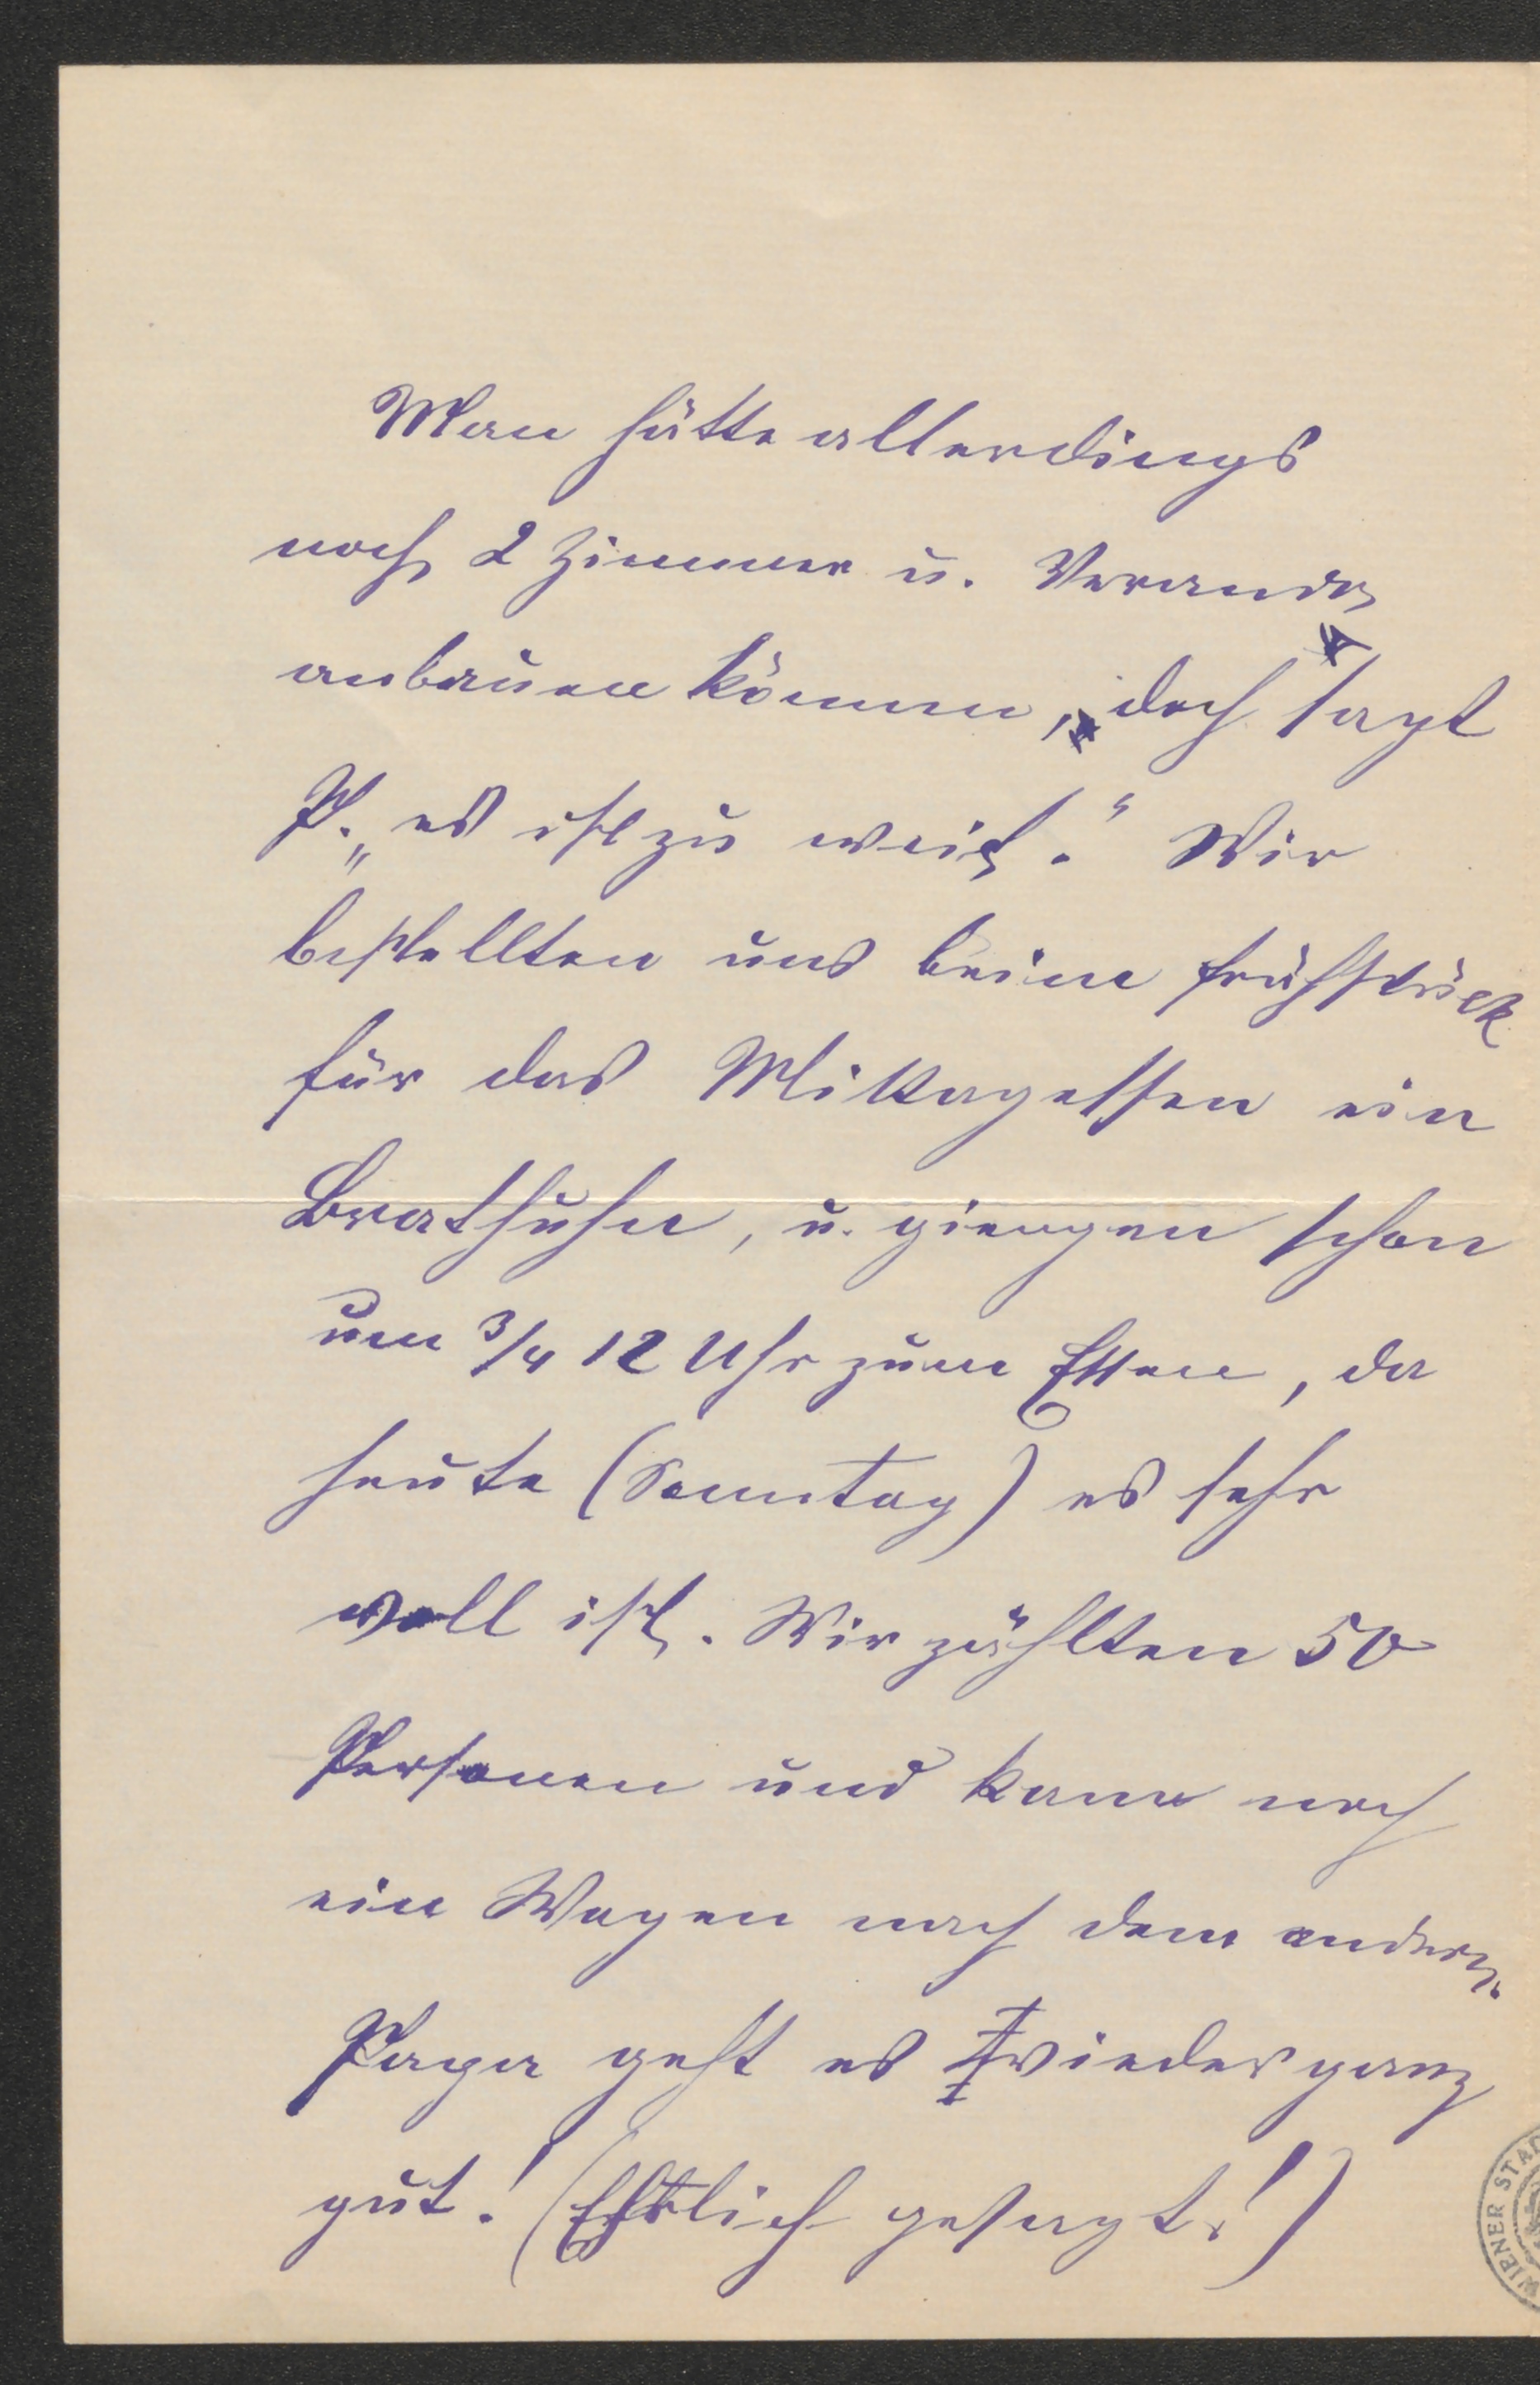 Man hätte allerdings
noch 2 Zimmer u. Veranda
anbauen können, doch sagt
P. „es ist zu weich.“ Wir
bestellten uns beim Frühstück
für das Mittagessen ein
Brathuhn, u. giengen schon
um 3/4 12 Uhr zum Essen, da
heute (Sonntag) es sehr
voll ist. Wir zählten 50
Personen und kam noch
ein Wagen nach dem andern.
Papa geht es wieder ganz
gut! (Ehrlich gesagt!)
WIENER STAD